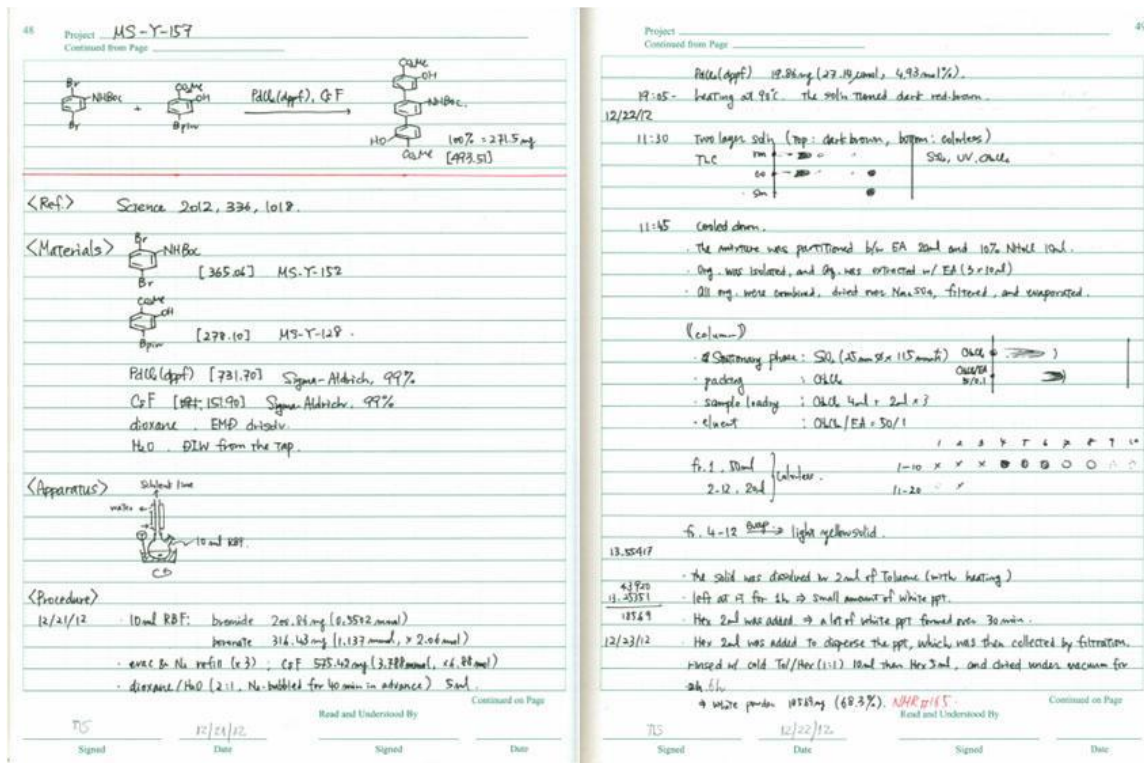 48
Project MS-Y-157
Continued from Page
Br
NHBoc
Br
+
CO₂Me
OH
Bpin
PdCl₂(dppf), CsF
CO₂Me
OH
NHBoc
HO
CO₂Me
100% = 271.5 mg
[493.51]
<Ref.> Science 2012, 336, 1018.
<Materials>
Br
NHBoc
Br
[365.06] MS-Y-152
CO₂Me
OH
Bpin
[278.10] MS-Y-128.
PdCl₂(dppf) [731.70] Sigma-Aldrich, 99%
CsF [151.90] Sigma-Aldrich. 99%
dioxane. EMD drisolv.
H₂O. DIW from the TAP.
<Apparatus>
Schlenk line
water
10 ml RBF.
<Procedure>
12/21/12 · 10 ml RBF: bromide (0.5502 mmol)
boronate 316.43 mg (1.137 mmol, x 2.06 mol)
· evac & N₂ refill (x3); CsF 575.42 mg (3.788 mmol, x6.88 mol)
· dioxane/H₂O (2:1, N₂-bubbled for 40 min in advance) 5 ml.
Continued on Page
Read and Understood By
12/21/12
Signed Date Signed Date
49
Project
Continued from Page
PdCl₂(dppf) 19.86 mg (27.14 μmol, 4.93 mol%).
19:05- heating at 90°C. The sol'n turned dark red-brown.
12/22/12
11:30 Two layer sol'n (top: dark brown, bottom: colorless)
TLC
rm
co
sm
SiO₂, UV, CH₂Cl₂
11:45 cooled down.
· The mixture was partitioned b/w EA 20ml and 10% NH₄Cl 10ml.
· Org. was isolated, and Aq. was extracted w/ EA (3 x 10ml)
· All org. were combined, dried over Na₂SO₄, filtered, and evaporated.
(column)
· Stationary phase: SiO₂ (25 mm ø x 115 mm h)
· packing : CH₂Cl₂
· sample loading : CH₂Cl₂ 4ml + 2ml x 3
· eluent : CH₂Cl₂/EA = 50/1
CH₂Cl₂
CH₂Cl₂/EA
1 2 3 4 5 6 7 8 9 10
fr. 1. 50ml
2-12. 20ml
colorless.
1-10 x x x
11-20 x
fr. 4-12 evap. → light yellow solid.
13.55417
· The solid was dissolved in 2ml of Toluene (with heating)
43920
13.25351
18569
· left at rt for 1h ⇒ small amount of white ppt.
· Hex 2ml was added ⇒ a lot of white ppt formed over 30 min.
12/23/12 · Hex 2ml was added to disperse the ppt, which was then collected by filtration.
rinsed w/ cold Tol/Hex (1:1) 12ml then Hex 5ml, and dried under vacuum for
6h
⇒ white powder 185.69 mg (68.3%). NMR#165.
Continued on Page
Read and Understood By
12/22/12
Signed Date Signed Date